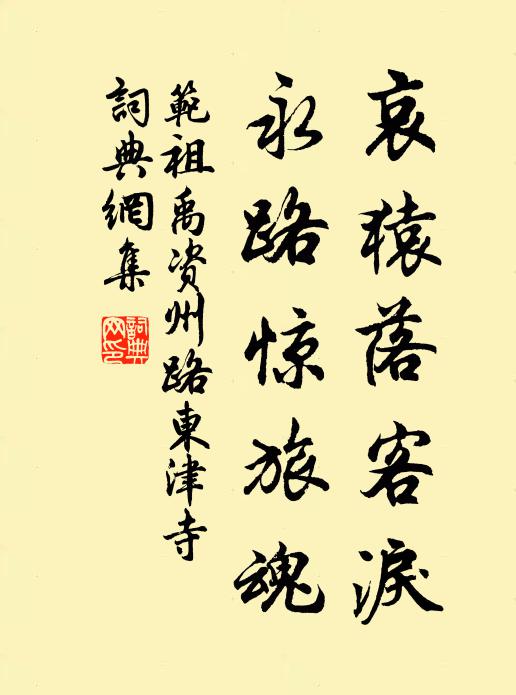 哀猿落客淚
永路惊旅魂
範祖禹资州路東津寺
詞典網集
詞典网印